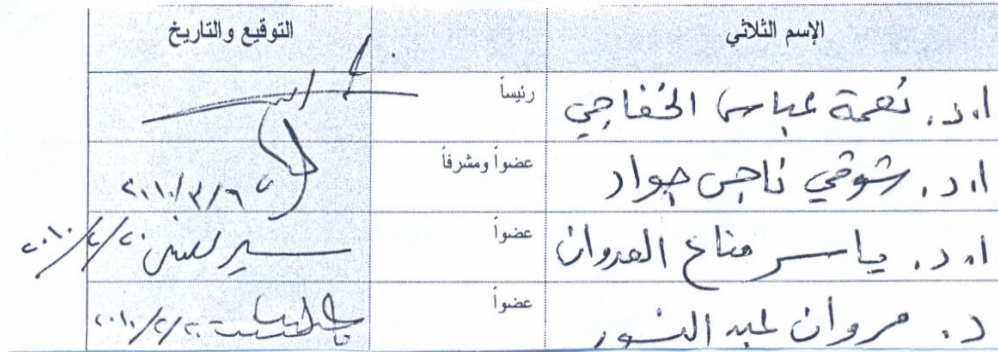 الإسم الثلاثي التوقيع والتاريخ
ا.د. نعمة عباس الخفاجي رئيساً
ا.د. شوقي ناجي جواد عضواً ومشرفاً ٢٠١٠/٣/٦
ا.د. ياسر مناع العدوان عضواً ٢٠١٠/٢/٢٠
د. مروان عبد النسور عضواً ٢٠١٠/٢/٢٠